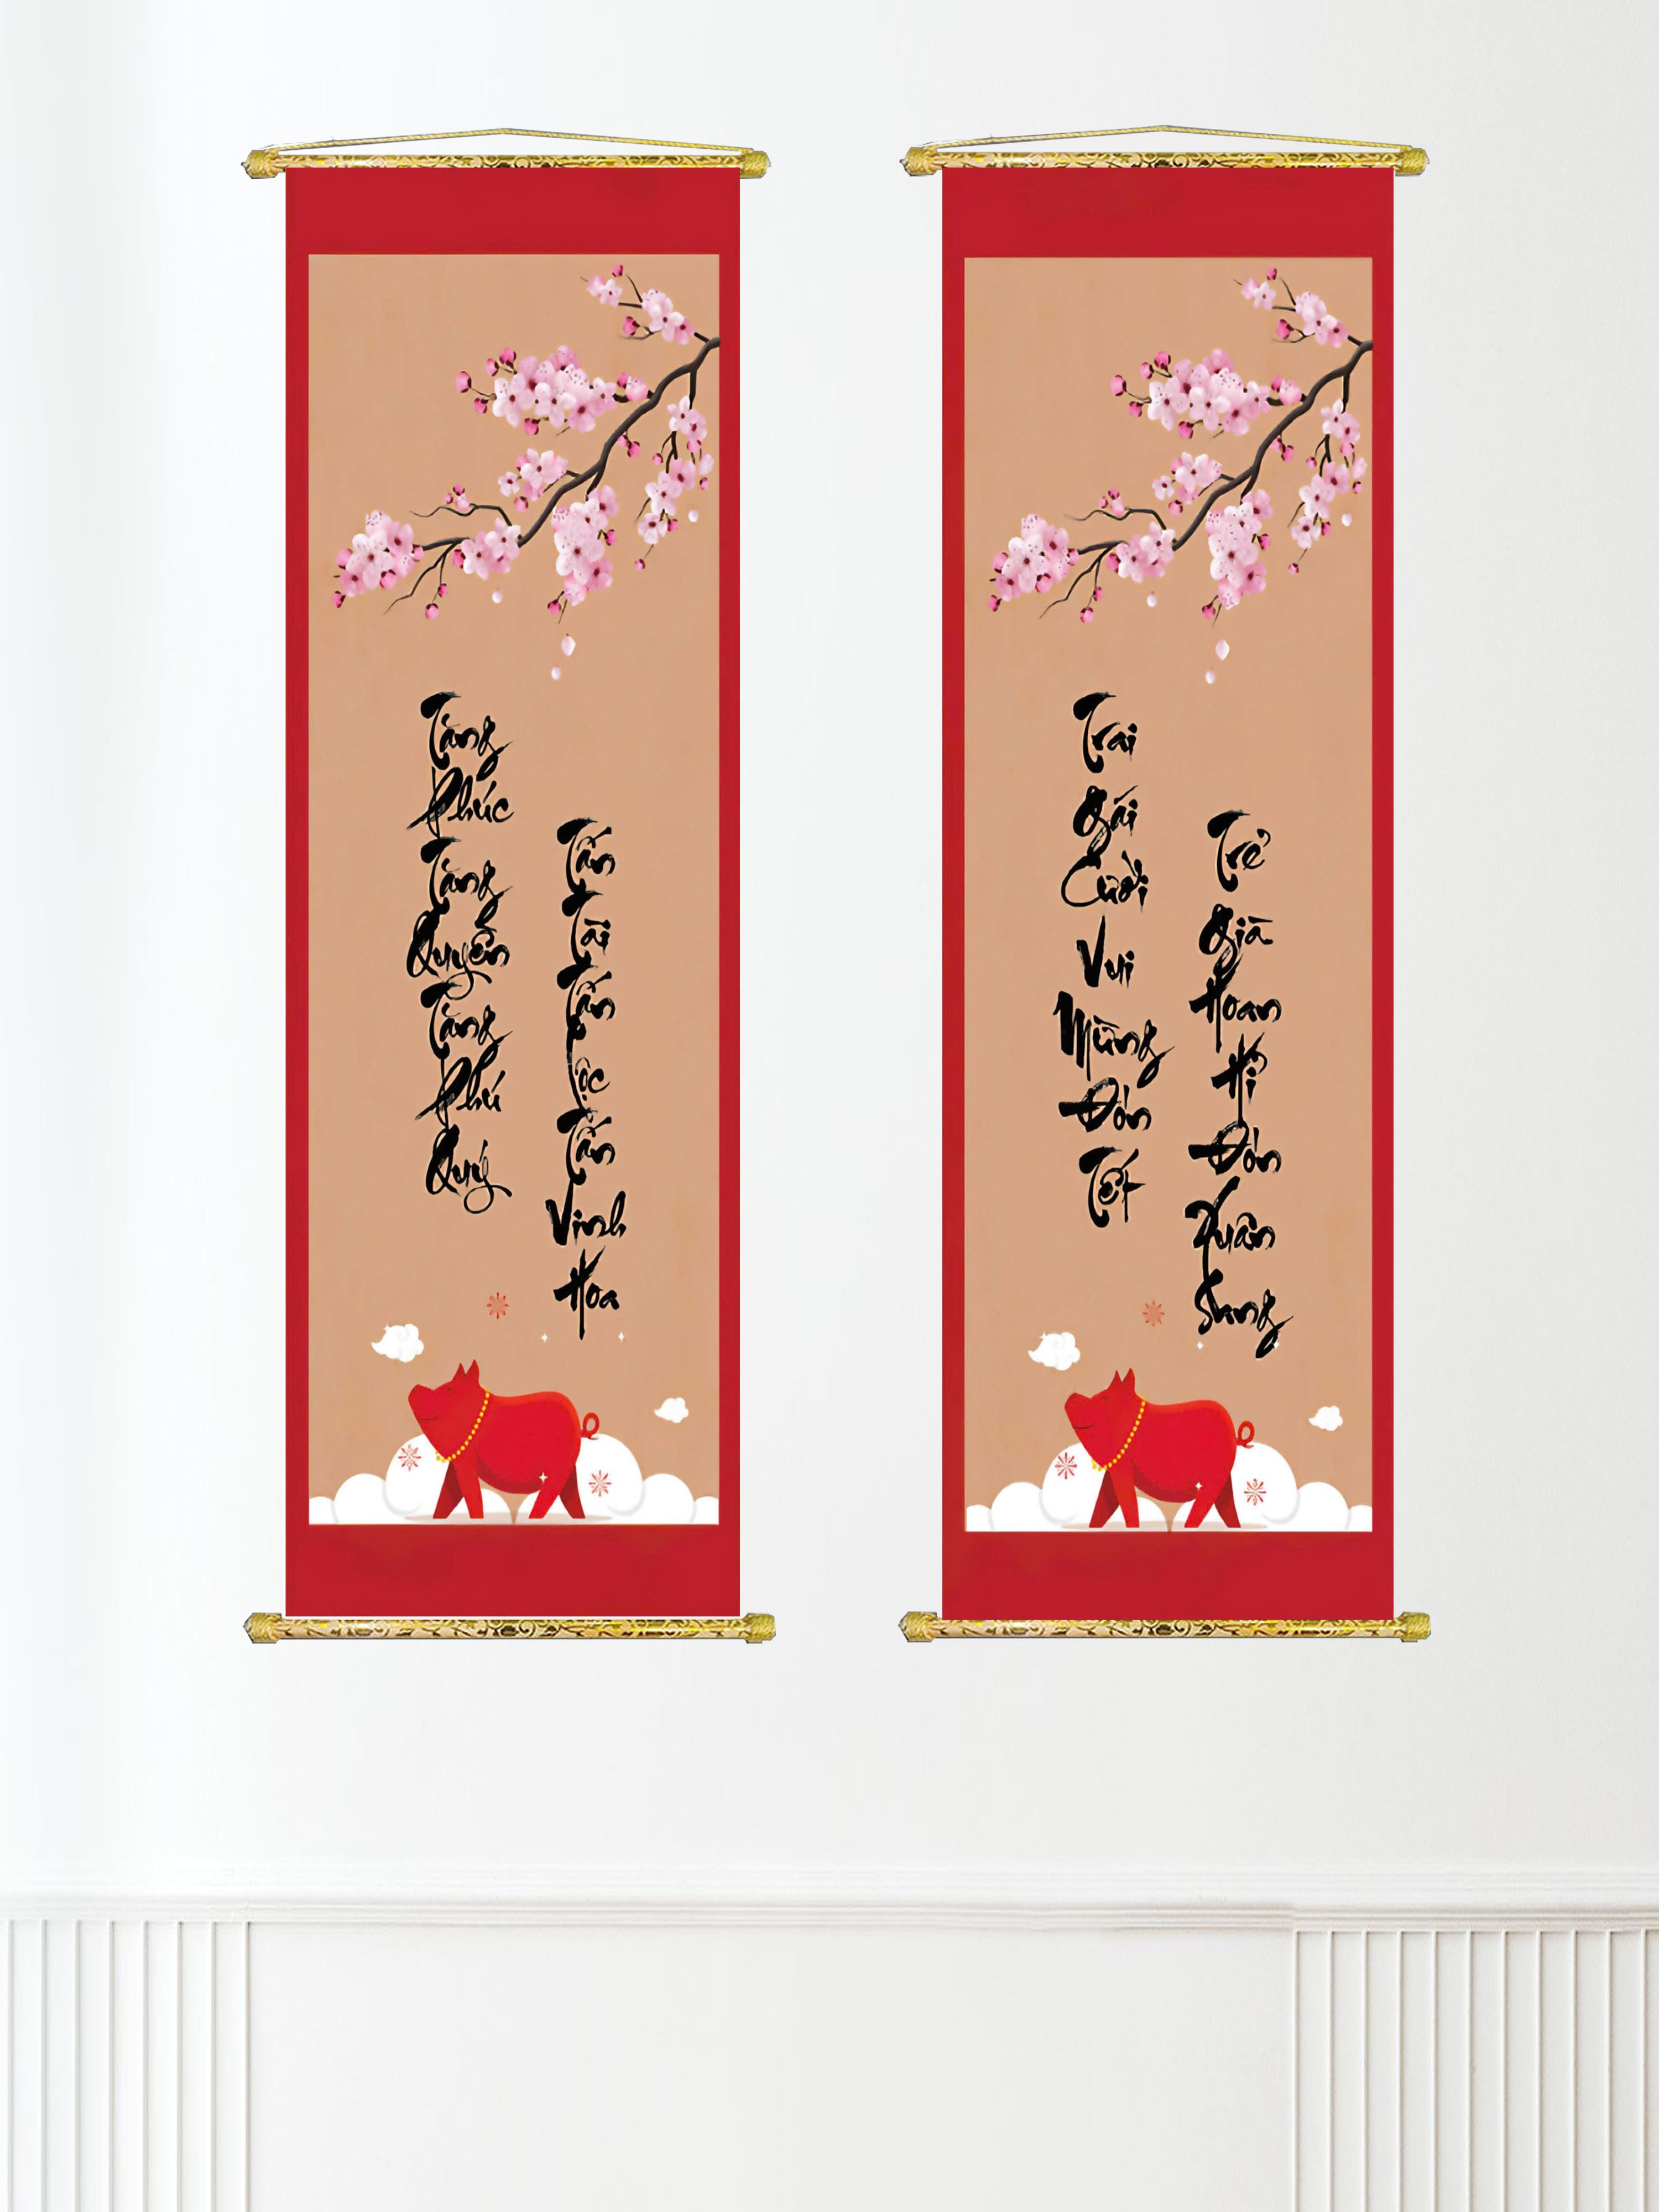 Tăng Phúc Tăng Quyền Tăng Phú Quý
Tấn Tài Tấn Lộc Tấn Vinh Hoa
Trai Gái Cười Vui Mừng Đón Tết
Trẻ Già Hoan Hỉ Đón Xuân Sang